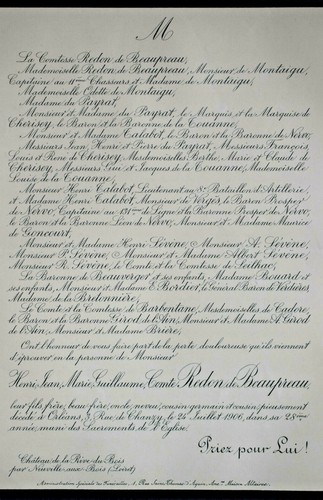 M
La Comtesse Redon de Beaupreau,
Mademoiselle Redon de Beaupreau, Monsieur de Montaigu,
Capitaine au 11ème Chasseurs et Madame de Montaigu,
Mademoiselle Odette de Montaigu,
Madame du Payrat,
Monsieur et Madame du Payrat, le Marquis et la Marquise de
Cherisey, le Baron et la Baronne de la Couanne,
Monsieur et Madame Talabot, le Baron et la Baronne de Nervo,
Messieurs Jean Henri et Pierre du Payrat, Messieurs François
Louis et René de Cherisey, Mesdemoiselles Berthe, Marie et Claude de
Cherisey, Messieurs Gui et Jacques de la Couanne, Mademoiselle
Louise de la Couanne,
Monsieur Henri Talabot, Lieutenant au 8e Bataillon d'Artillerie,
et Madame Henri Talabot, Monsieur de Vergès, le Baron Prosper
de Nervo, Capitaine au 131ème de Ligne et la Baronne Prosper de Nervo,
le Baron et la Baronne Léon de Nervo, Monsieur et Madame Maurice
de Goncourt,
Monsieur et Madame Henri Levène, Monsieur A. Levène,
Monsieur P. Levène, Monsieur et Madame Albert Levène,
Monsieur R. Levène, le Comte et la Comtesse de Leilhac,
La Baronne de Beauverger et ses enfants, Madame Bunard et
ses enfants, Monsieur et Madame E. Bordier, le Général Baron de Verdières,
Madame de la Bretonnière,
Le Comte et la Comtesse de Barbentane, Mesdemoiselles de Cadore,
le Baron et la Baronne Girod de l'Ain, Monsieur et Madame A. Girod
de l'Ain, Monsieur et Madame Brière,
Ont l'honneur de vous faire part de la perte douloureuse qu'ils viennent
d'éprouver en la personne de Monsieur
Henri, Jean, Marie, Guillaume, Comte Redon de Beaupreau,
leur fils, frère, beau-frère, oncle, neveu, cousin-germain et cousin, pieusement
décédé à Orléans, 8, Rue de Chanzy, le 24 Juillet 1906, dans sa 28ème
année, muni des Sacrements de l'Eglise.
Priez pour Lui!
Château de la Rive-du-Bois
par Neuville-aux-Bois (Loiret)
Administration Spéciale de Funérailles, 1, Rue Saint-Pierre d'Agen, Mon Altaime.